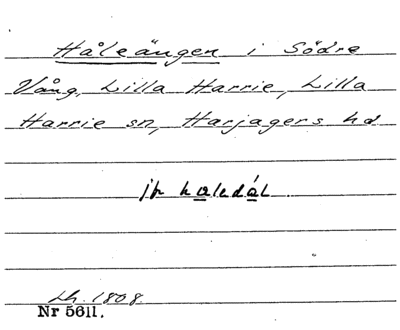 Håleängen i Södre
Vång, Lilla Harrie, Lilla
Harrie sn, Harjagers hd
jr haledál
Lh. 1808.
Nr 5611.